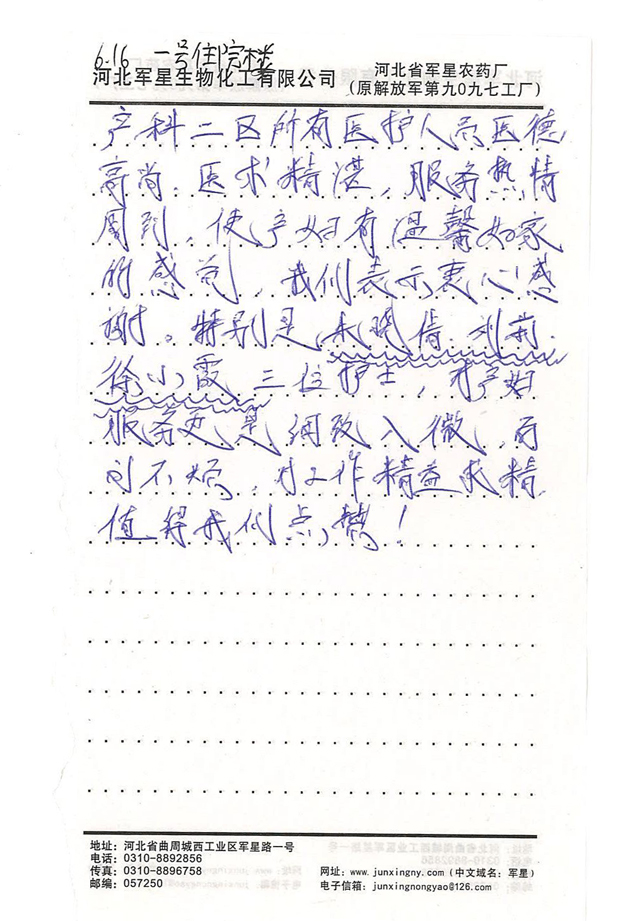 6.16 一号住院楼
河北军星生物化工有限公司
河北省军星农药厂
(原解放军第九0九七工厂)
产科二区所有医护人员医德
高尚.医术精湛,服务热情
周到,使产妇有温馨如家
的感觉,我们表示衷心感
谢。特别是,晓倩.刘莉.
徐小霞三位护士,对产妇
服务更是细致入微,
不烦,对工作精益求精.
值得我们点赞!
地址:河北省曲周城西工业区军星路一号
电话:0310-8892856
传真:0310-8896758
邮编:057250
网址:www.junxingny.com(中文域名:军星)
电子信箱:junxingnongyao@126.com